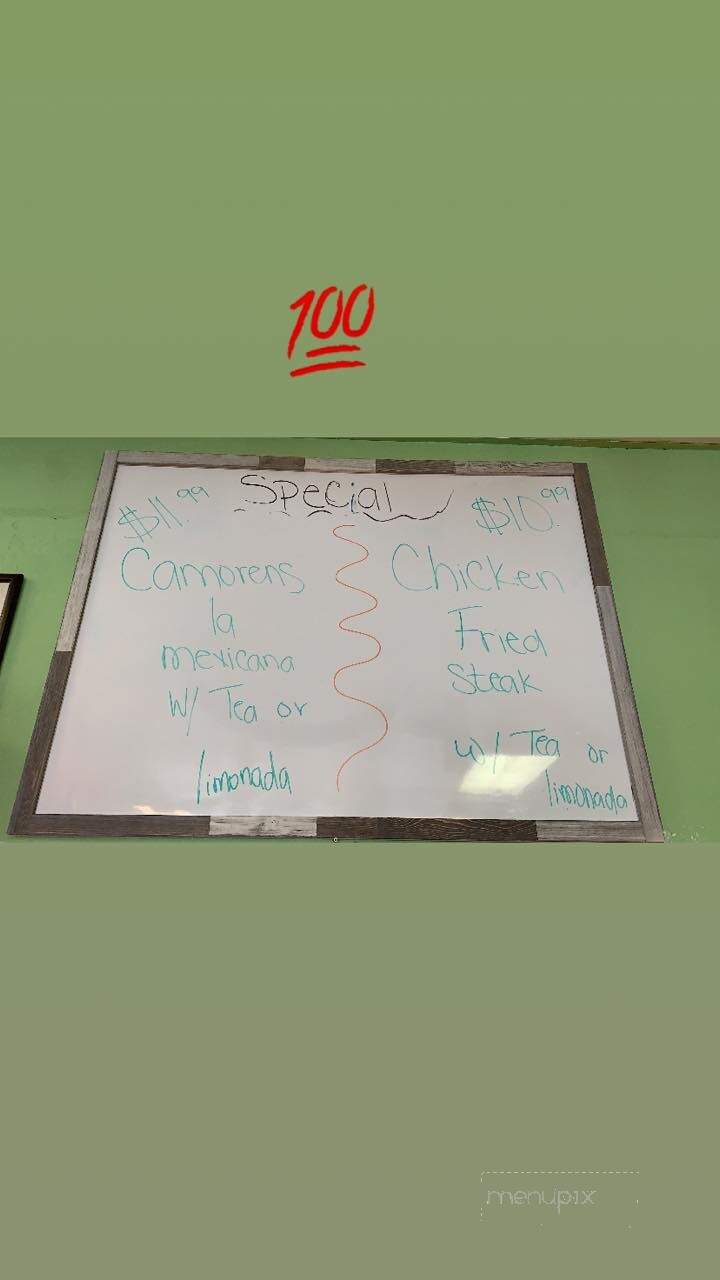 💯
Special
$11.99
Camorens
la
mexicana
W/ Tea or
limonada
$10.99
Chicken
Fried
Steak
w/ Tea or
limonada
menupix